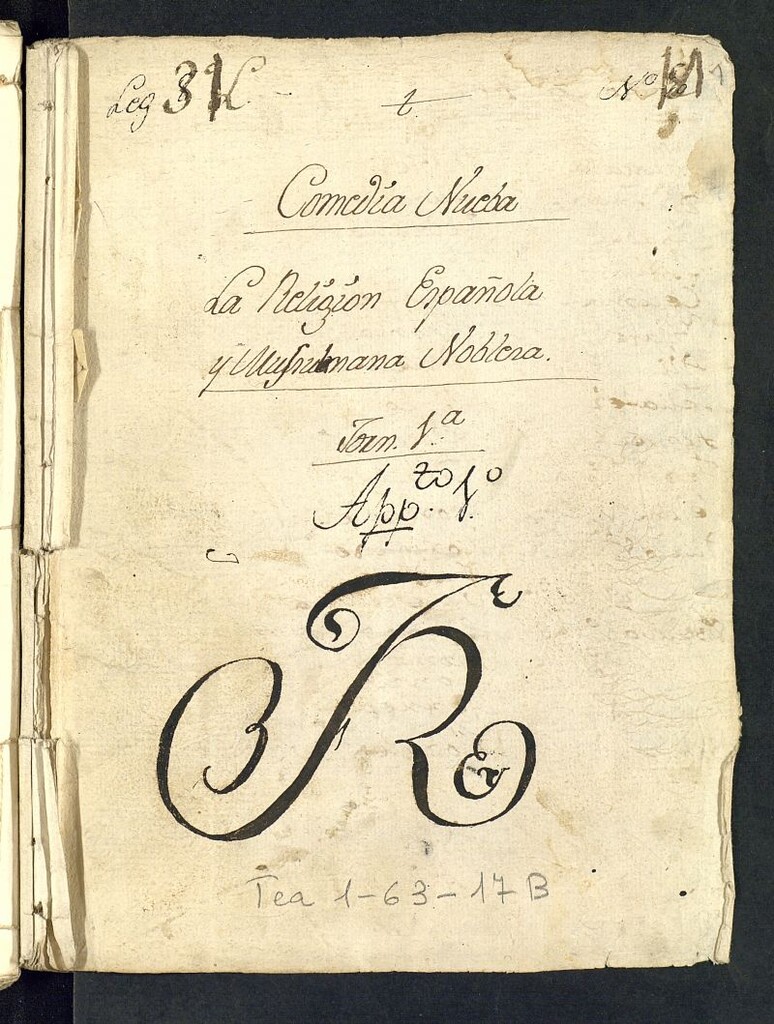 Leg 31
t
Nº 
Comedia Nueba
La Religion Española
y Musulmana Nobleza.
Jorn. 1.ª
App.to 1.º
Tea 1-63-17 B